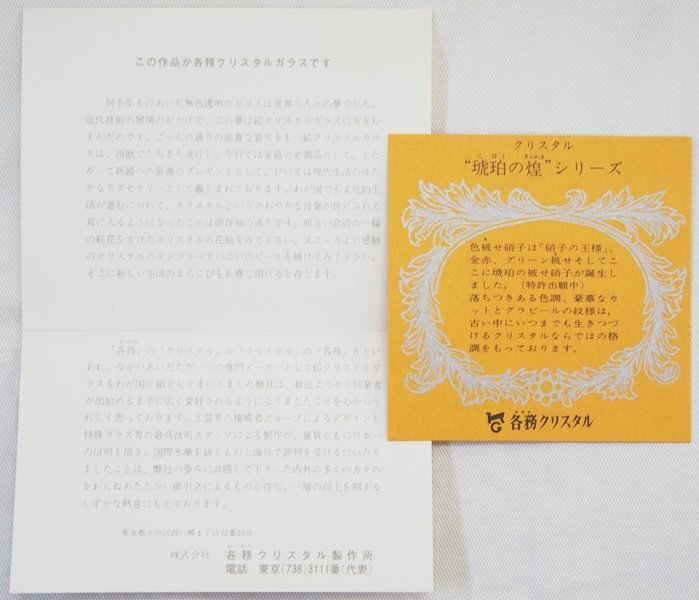 この作品が各務クリスタルガラスです
何千年ものあいだ無色透明のガラスは世界の人々の夢でした。
近代技術の展開のおかげで、この夢は鉛クリスタルガラスに実をむ
すんだのです。ごらんの通りの高貴な資生をもつ鉛クリスタルガラ
スは、西欧でたちまち流行し、今日では家庭の必需品として、した
がって新婚への最適のプレゼントとして、ひいては現代生活のゆた
かなアクセサリーとして親しまれております。わが国でも文化的生
活が進むにつれて、クリスタルというさわやかな言葉が折にふれて
耳に入るようになったことは御存知の通りです。明るい窓辺の一輪
の紅花を生けたクリスタルの花瓶をみて下さい。又こゝろよい感触
のクリスタルのタンブラーでいこいのビールを傾けてみて下さい。
そこに新しい生活のよろこびをお感じ頂けると存じます。
「各務」の「クリスタル」か「クリスタル」の「各務」かとい
われ、ながいあいだただ一つの専門メーカーとして鉛クリスタルガ
ラスをわが国に紹介してまいりました弊社は、最近ようやく同業者
が出始めるまでに広く愛好されるようになりましたことを心からう
れしく思っております。工芸界の権威者グループによるデザインと
特殊ガラス界の最高技術スタッフによる製作が、量質ともに日本一
の信用を頂き、国際水準を抜くものと海外で評判を受けるにいたり
ましたことは、弊社の歩みに共感して下さった内外の多くの方々の
かわらぬあたたかい御引立によるものと存じ、一層の向上を期する
しずかな熱意にもえております。
東京都大田区西六郷1丁目12番23号
株式会社 各務クリスタル製作所
電話 東京(738)3111番(代表)
クリスタル
“琥珀の煌”シリーズ
色被せ硝子は「硝子の王様」、
金赤、グリーン被せそしてこ
こに琥珀の被せ硝子が誕生し
ました。(特許出願中)
落ちつきある色調、豪華なカ
ットとグラビールの紋様は、
古い中にいつまでも生きつづ
けるクリスタルならではの格
調をもっております。
各務クリスタル